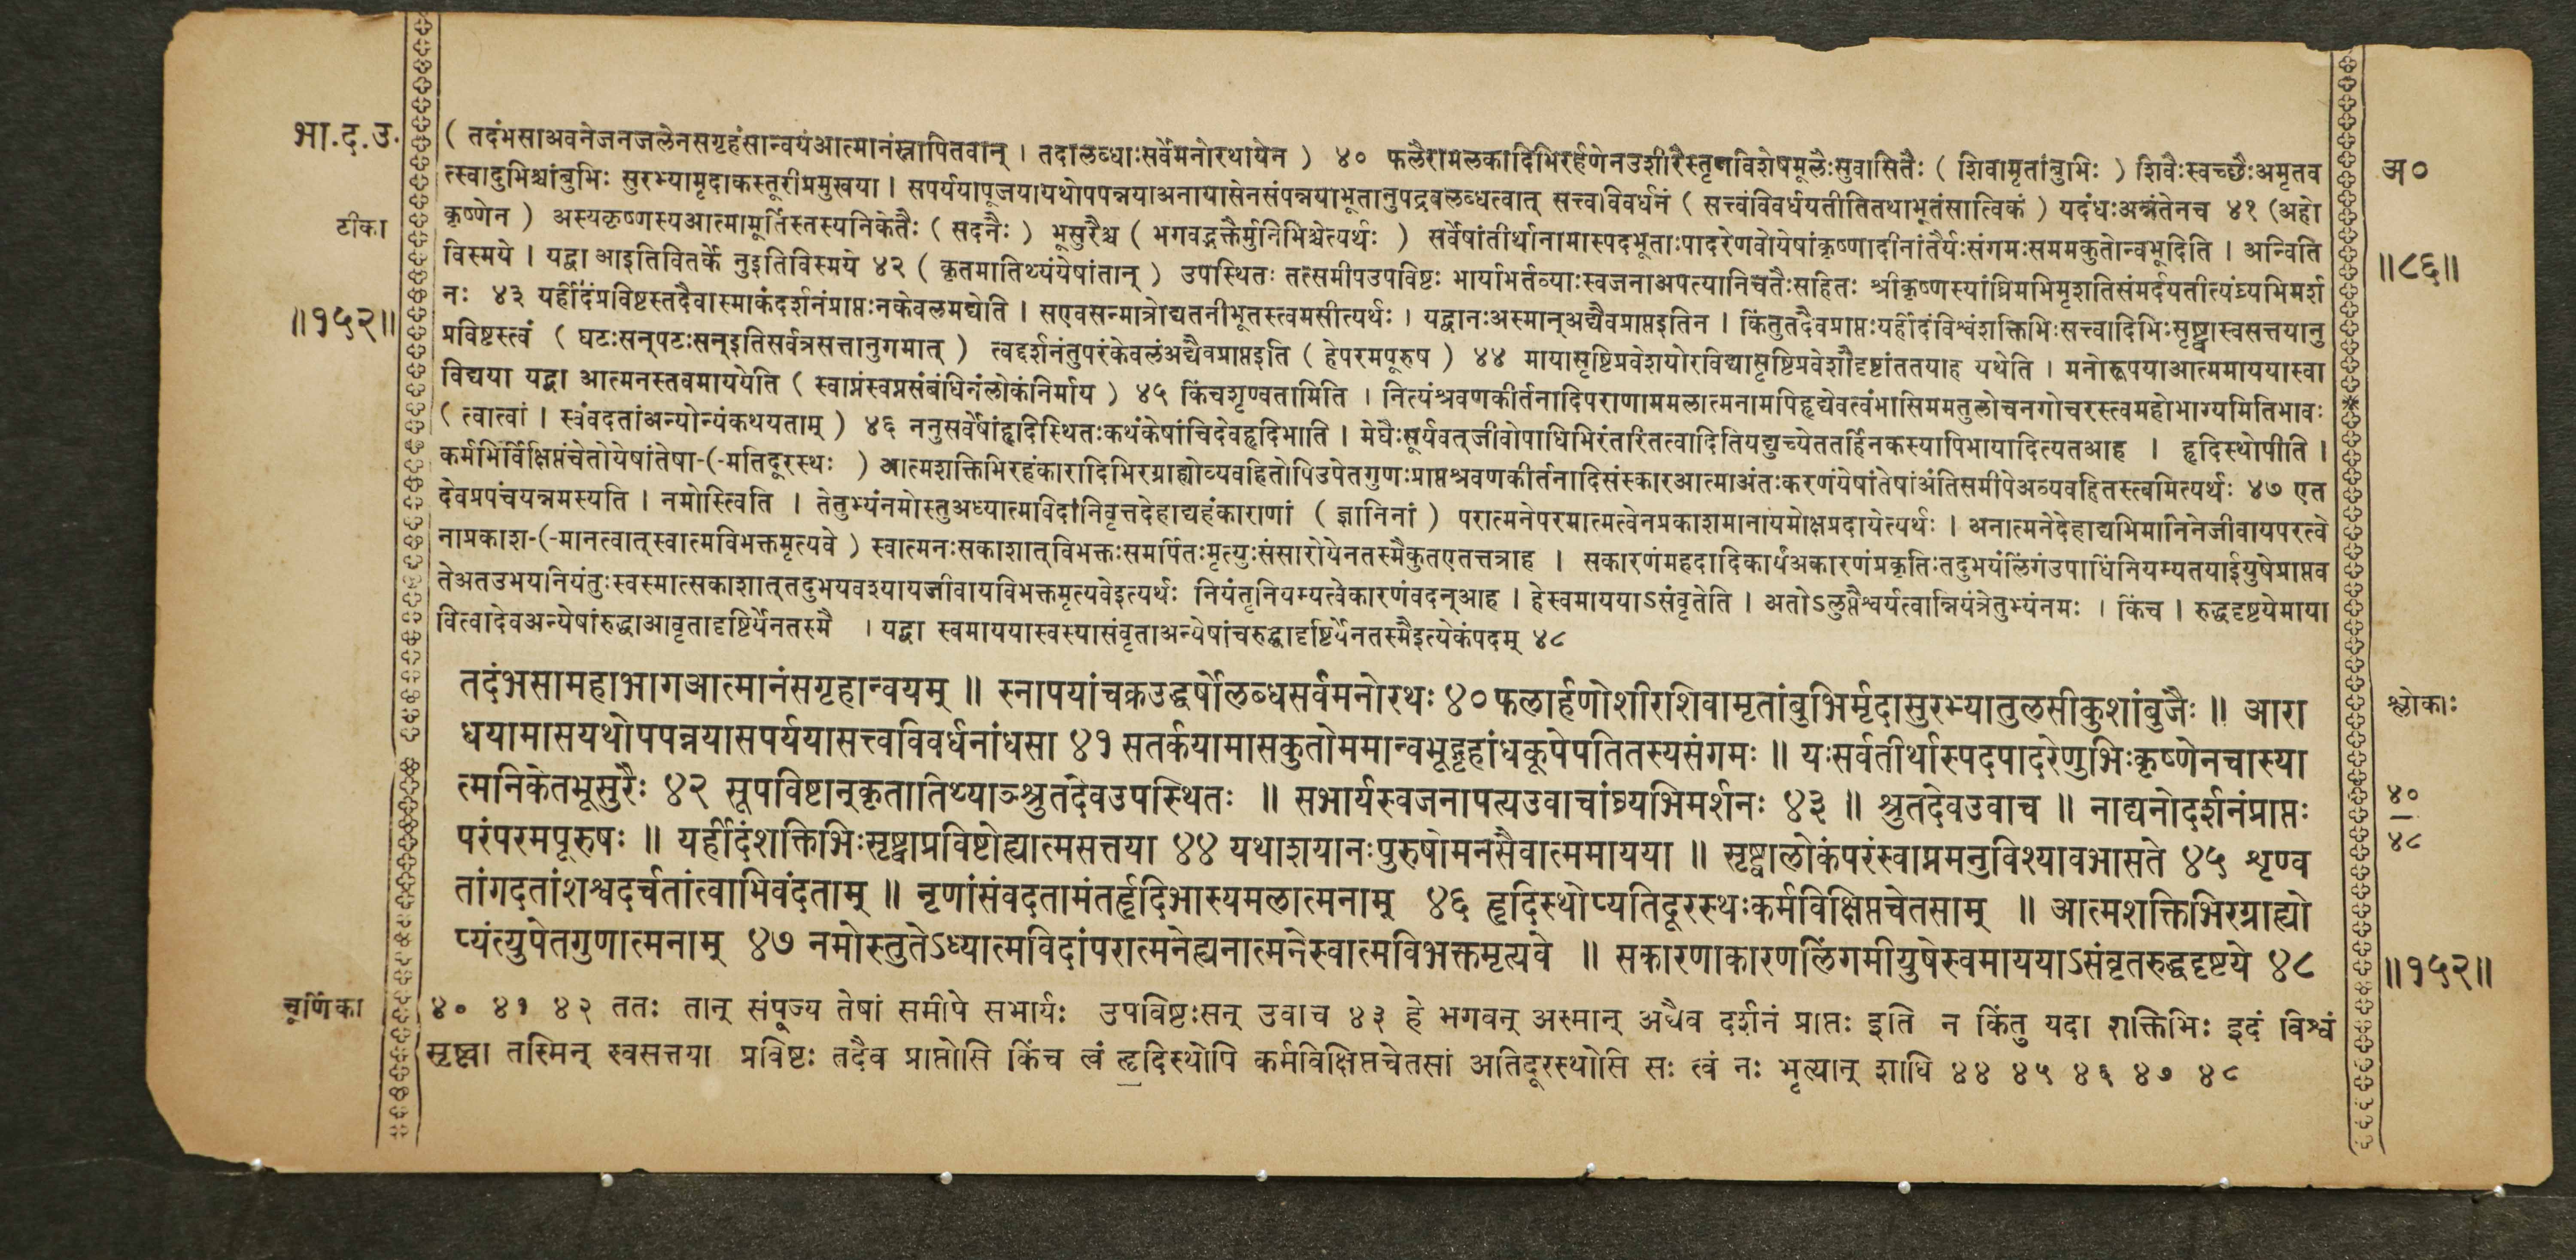 भा.द.उ.
टीका
॥१५२॥
( तदंभसाअवनेजनजलेनसगृहंसान्वयंआत्मानंस्नापितवान् । तदालब्धाःसर्वेमनोरथायेन ) ४० फलैरामलकादिभिरर्हणेनउशीरैस्तृणविशेषमूलैःसुवासितैः ( शिवामृतांबुभिः ) शिवैःस्वच्छैःअमृतव
त्स्वादुभिश्चांबुभिः सुरभ्यामृदाकस्तूरीप्रमुखया । सपर्ययापूजयायथोपपन्नयाअनायासेनसंपन्नयाभूतानुपद्रवलब्धत्वात् सत्त्वविवर्धनं ( सत्त्वंविवर्धयतीतितथाभूतंसात्विकं ) यदंधःअन्नंतेनच ४१ (अहो
कृष्णेन ) अस्यकृष्णस्यआत्मामूर्तिस्तस्यनिकेतैः ( सदनैः ) भूसुरैश्च ( भगवद्भक्तैर्मुनिभिश्चेत्यर्थः ) सर्वेषांतीर्थानामास्पदभूताःपादरेणवोयेषांकृष्णादीनांतैर्यःसंगमःसममकुतोन्वभूदिति । अन्विति
विस्मये । यद्वा आइतिवितर्के नुइतिविस्मये ४२ ( कृतमातिथ्यंयेषांतान् ) उपस्थितः तत्समीपउपविष्टः भार्याभर्तव्याःस्वजनाअपत्यानिचतैःसहितः श्रीकृष्णस्यांघ्रिमभिमृशतिसंमर्दयतीत्यंघ्र्यभिमर्श
नः ४३ यर्हीदंप्रविष्टस्तदैवास्माकंदर्शनंप्राप्तःनकेवलमद्येति । सएवसन्मात्रोद्यतनीभूतस्त्वमसीत्यर्थः । यद्वानःअस्मान्अद्यैवप्राप्तइतिन । किंतुतदैवप्राप्तःयर्हीदंविश्वंशक्तिभिःसत्त्वादिभिःसृष्ट्वास्वसत्तयानु
प्रविष्टस्त्वं ( घटःसन्पटःसन्इतिसर्वत्रसत्तानुगमात् ) त्वद्दर्शनंतुपरंकेवलंअद्यैवप्राप्तइति ( हेपरमपूरुष ) ४४ मायासृष्टिप्रवेशयोरविद्यासृष्टिप्रवेशौदृष्टांततयाह यथेति । मनोरूपयाआत्ममाययास्वा
विद्यया यद्वा आत्मनस्तवमाययेति ( स्वाप्नंस्वप्नसंबंधिनंलोकंनिर्माय ) ४५ किंचशृण्वतामिति । नित्यंश्रवणकीर्तनादिपराणाममलात्मनामपिहृद्येवत्वंभासिममतुलोचनगोचरस्त्वमहोभाग्यमितिभावः
( त्वात्वां । संवदतांअन्योन्यंकथयताम् ) ४६ ननुसर्वेषांहृदिस्थितःकथंकेषांचिदेवहृदिभाति । मेघैःसूर्यवत्जीवोपाधिभिरंतरितत्वादितियद्युच्येततर्हिनकस्यापिभायादित्यतआह । हृदिस्थोपीति ।
कर्मभिर्विक्षिप्तंचेतोयेषांतेषा-(-मतिदूरस्थः ) आत्मशक्तिभिरहंकारादिभिरग्राह्योव्यवहितोपिउपेतगुणःप्राप्तश्रवणकीर्तनादिसंस्कारआत्माअंतःकरणंयेषांतेषांअंतिसमीपेअव्यवहितस्त्वमित्यर्थः ४७ एत
देवप्रपंचयन्नमस्यति । नमोस्त्विति । तेतुभ्यंनमोस्तुअध्यात्मविदांनिवृत्तदेहाद्यहंकाराणां ( ज्ञानिनां ) परात्मनेपरमात्मत्वेनप्रकाशमानायमोक्षप्रदायेत्यर्थः । अनात्मनेदेहाद्यभिमानिनेजीवायपरत्वे
नाप्रकाश-(-मानत्वात्स्वात्मविभक्तमृत्यवे ) स्वात्मनःसकाशात्विभक्तःसमर्पितःमृत्युःसंसारोयेनतस्मैकुतएतत्तत्राह । सकारणंमहदादिकार्यंअकारणंप्रकृतिःतदुभयंलिंगंउपाधिंनियम्यतयाईयुषेप्राप्तव
तेअतउभयनियंतुःस्वस्मात्सकाशात्तदुभयवश्यायजीवायविभक्तमृत्यवेइत्यर्थः नियंतृनियम्यत्वेकारणंवदन्आह । हेस्वमाययाऽसंवृतेति । अतोऽलुप्तैश्वर्यत्वान्नियंत्रेतुभ्यंनमः । किंच । रुद्धदृष्टयेमाया
वित्वादेवअन्येषांरुद्धाआवृतादृष्टिर्येनतस्मै । यद्वा स्वमाययास्वस्यासंवृताअन्येषांचरुद्धादृष्टिर्येनतस्मैइत्येकंपदम् ४८
तदंभसामहाभागआत्मानंसगृहान्वयम् ॥ स्नापयांचक्रउद्धर्षोलब्धसर्वमनोरथः ४० फलार्हणोशीरशिवामृतांबुभिर्मृदासुरभ्यातुलसीकुशांबुजैः ॥ आरा
धयामासयथोपपन्नयासपर्ययासत्त्वविवर्धनांधसा ४१ सतर्कयामासकुतोममान्वभूद्गृहांधकूपेपतितस्यसंगमः ॥ यःसर्वतीर्थास्पदपादरेणुभिःकृष्णेनचास्या
त्मनिकेतभूसुरैः ४२ सूपविष्टान्कृतातिथ्याञ्श्रुतदेवउपस्थितः ॥ सभार्यस्वजनापत्यउवाचांघ्र्यभिमर्शनः ४३ ॥ श्रुतदेवउवाच ॥ नाद्यनोदर्शनंप्राप्तः
परंपरमपूरुषः ॥ यर्हीदंशक्तिभिःसृष्ट्वाप्रविष्टोह्यात्मसत्तया ४४ यथाशयानःपुरुषोमनसैवात्ममायया ॥ सृष्ट्वालोकंपरंस्वाप्नमनुविश्यावभासते ४५ शृण्व
तांगदतांशश्वदर्चतांत्वाभिवंदताम् ॥ नृणांसंवदतामंतर्हृदिभास्यमलात्मनाम् ४६ हृदिस्थोप्यतिदूरस्थःकर्मविक्षिप्तचेतसाम् ॥ आत्मशक्तिभिरग्राह्यो
प्यंत्युपेतगुणात्मनाम् ४७ नमोस्तुतेऽध्यात्मविदांपरात्मनेह्यनात्मनेस्वात्मविभक्तमृत्यवे ॥ सकारणाकारणलिंगमीयुषेस्वमाययाऽसंवृतरुद्धदृष्टये ४८
चूर्णिका
४० ४१ ४२ ततः तान् संपूज्य तेषां समीपे सभार्यः उपविष्टःसन् उवाच ४३ हे भगवन् अस्मान् अधैव दर्शनं प्राप्तः इति न किंतु यदा शक्तिभिः इदं विश्वं
सृष्ट्वा तस्मिन् स्वसत्तया प्रविष्टः तदैव प्राप्तोसि किंच त्वं हृदिस्थोपि कर्मविक्षिप्तचेतसां अतिदूरस्थोसि सः त्वं नः भृत्यान् शाधि ४४ ४५ ४६ ४७ ४८
अ०
॥८६॥
श्लोकाः
४०
४८
॥१५२॥